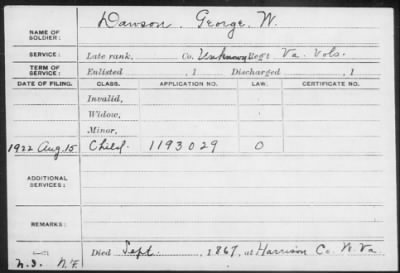 Dawson, George W.
NAME OF SOLDIER:
SERVICE: Late rank, Co. Unknown Reg't Va. Vols.
TERM OF SERVICE: Enlisted , 1 Discharged , 1
DATE OF FILING. CLASS. APPLICATION NO. LAW. CERTIFICATE NO.
Invalid,
Widow,
Minor,
1922 Aug. 15 Child 1193029 O
ADDITIONAL SERVICES:
REMARKS:
Died Sept. , 1867, at Harrison Co. W. Va.